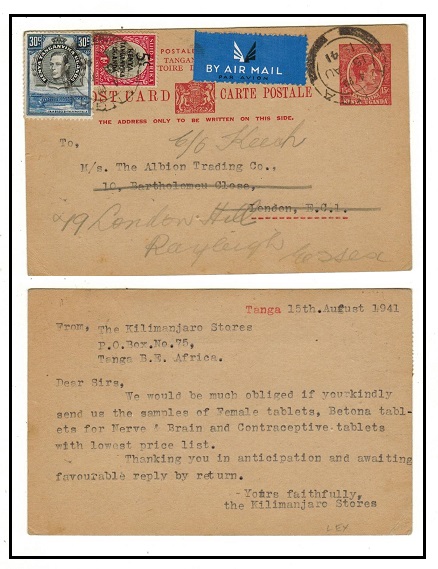 30c
KENYA TANGANYIKA UGANDA
POSTALE
BY AIR MAIL
PAR AVION
POST CARD CARTE POSTALE
THE ADDRESS ONLY TO BE WRITTEN ON THIS SIDE.
15c
KENYA UGANDA
To,
c/o Keech
M/s. The Albion Trading Co.,
10, Bartholomew Close,
London, E.C.1.
79 London Hill
Rayleigh Essex
Tanga 15th. August 1941
From, The Kilimanjaro Stores
P.O.Box.No.75,
Tanga B.E. Africa.
Dear Sirs,
We would be much obliged if yourkindly
send us the samples of Female tablets, Betona tabl-
ets for Nerve & Brain and Contraceptive tablets
with lowest price list.
Thanking you in anticipation and awaiting
favourable reply by return.
- Yours faithfully,
the Kilimanjaro Stores